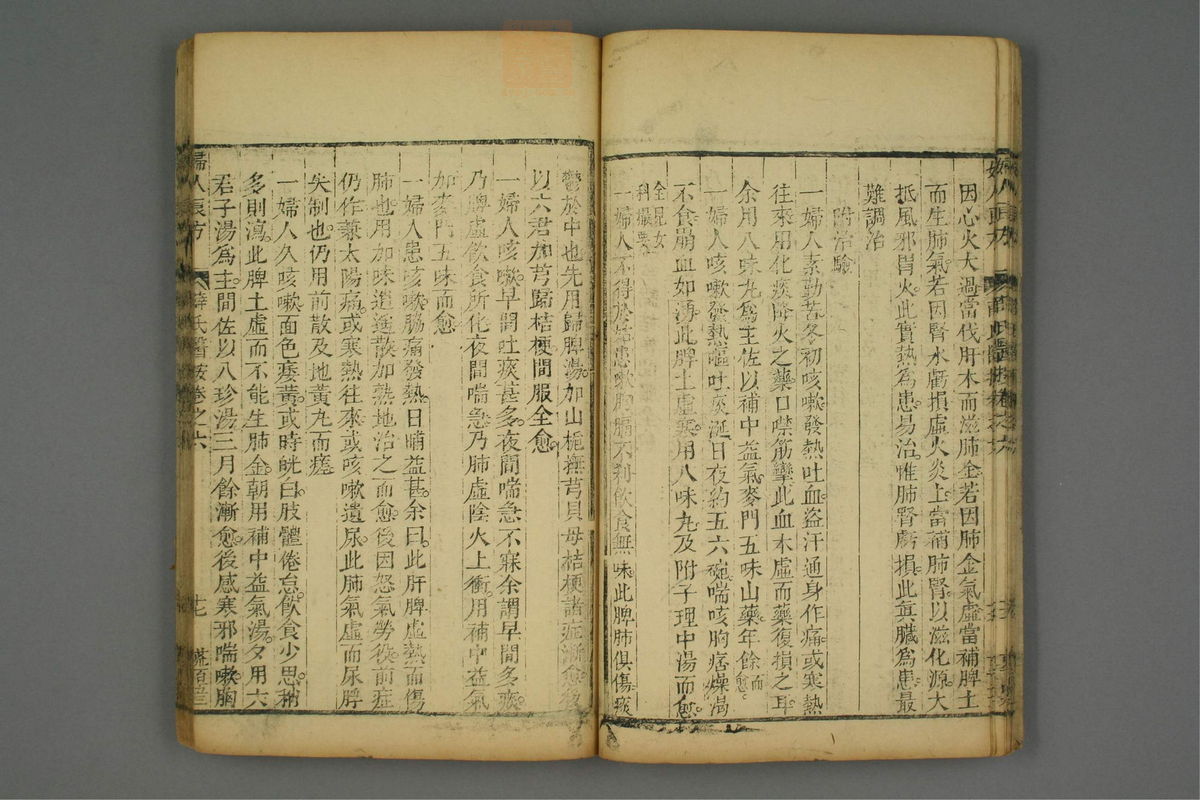 因心火太過當伐肝木而滋肺金若因肺金氣虛當補脾土
而生肺氣若因腎水虧損虛火炎上當補肺腎以滋化源大
抵風邪胃火此實熱為患易治惟肺腎虧損此真臟為患最
難調治
附治驗
一婦人素勤苦冬初咳嗽發熱吐血盜汗通身作痛或寒熱
往來用化痰降火之藥口噤筋攣此血本虛而藥復損之耳
余用八味丸為主佐以補中益氣麥門五味山藥年餘而愈
一婦人咳嗽發熱嘔吐痰涎日夜約五六碗喘咳胸痞燥渴
不食崩血如湧此脾土虛寒用八味丸及附子理中湯而愈
全是女科撮要
一婦人不得於姑患嗽胸膈不利飲食無味此脾肺俱傷痰
鬱於中也先用歸脾湯加山梔撫芎貝母桔梗諸症漸愈後
以六君加芎歸桔梗間服全愈
一婦人咳嗽早間吐痰甚多夜間喘急不寐余謂早間多痰
乃脾虛飲食所化夜間喘急乃肺虛陰火上衝用補中益氣
加麥門五味而愈
一婦人患咳嗽脇痛發熱日晡益甚余曰此肝脾虛熱而傷
肺也用加味逍遙散加熟地治之而愈後因怒氣勞役前症
仍作兼太陽痛或寒熱往來或咳嗽遺尿此肺氣虛而尿脬
失制也仍用前散及地黃丸而瘥
一婦人久咳嗽面色痿黃或時㿠白肢體倦怠飲食少思稍
多則瀉此脾土虛而不能生肺金朝用補中益氣湯夕用六
君子湯為主間佐以八珍湯三月餘漸愈後感寒邪喘嗽胸
婦人良方
薛氏醫按卷之六
七